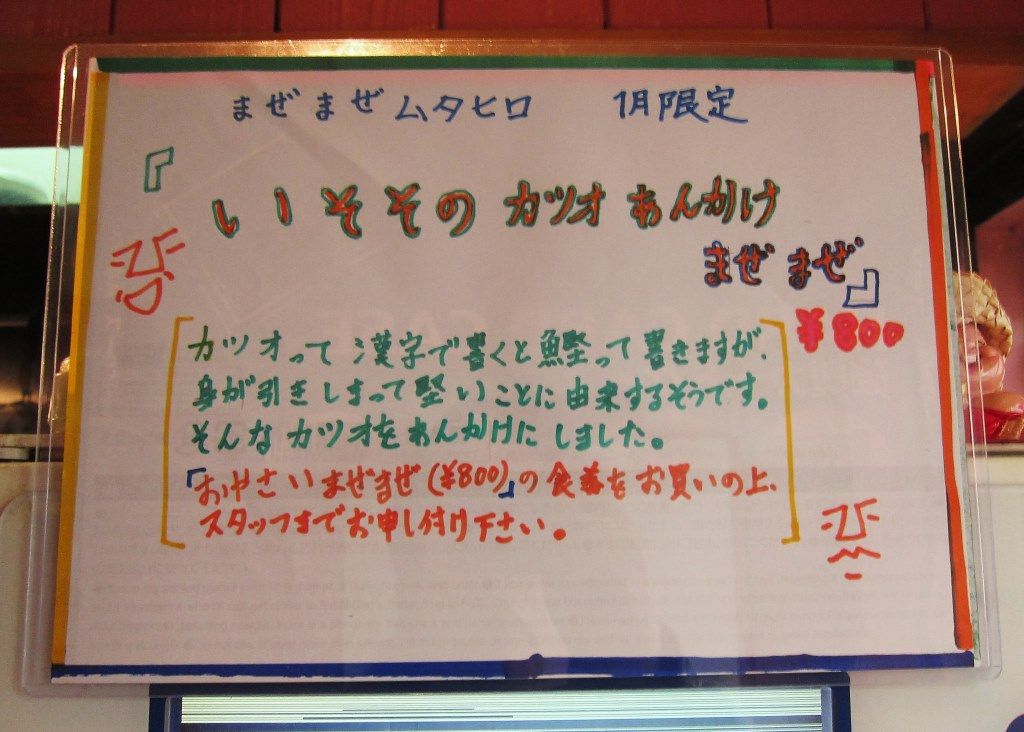 まぜまぜムタヒロ 1月限定
『いいそそのカツオあんかけ
まぜまぜ』
¥800
カツオって漢字で書くと鰹って書きますが、
身が引きしまって堅いことに由来するそうです。
そんなカツオをあんかけにしました。
「おやさいまぜまぜ(¥800)」の食券をお買いの上、
スタッフまでお申し付け下さい。